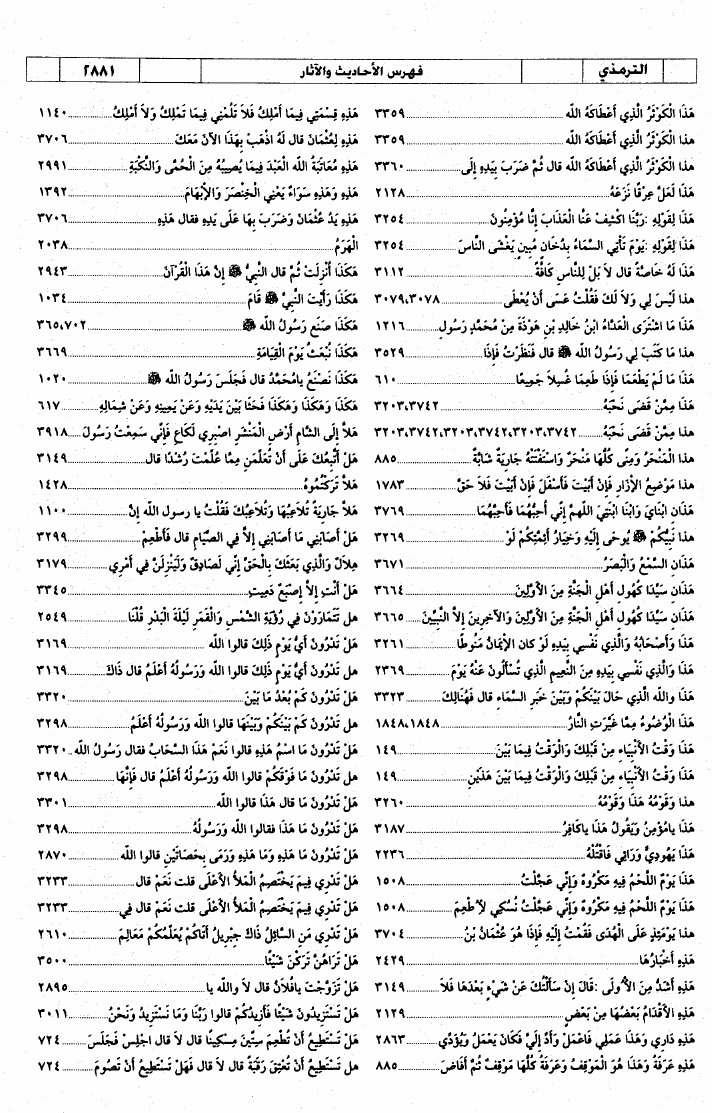 الترمذي
فهرس الأحاديث والآثار
٢٨٨١
هَذَا الْكَوْثَرُ الَّذِي أَعْطَاكَهُ الله ٣٣٥٩
هذا الْكَوْثَرُ الَّذِي أَعْطَاكَهُ الله ٣٣٥٩
هذا الْكَوْثَرُ الَّذِي أَعْطَاكَهُ الله قال ثُمَّ ضَرَبَ بِيَدِهِ إلَى ٣٣٦٠
هَذَا لَعَلَّ عِرْقًا نَزَعَهُ ٢١٢٨
هَذَا لِقَوْلِهِ :رَبَّنَا اكْشِفْ عَنَّا الْعَذَابَ إنَّا مُؤْمِنُونَ ٣٢٥٤
هَذَا لِقَوْلِهِ :يَوْمَ تَأْتِي السَّمَاءُ بِدُخَانٍ مُبِينٍ يَغْشَى النَّاسَ ٣٢٥٤
هَذَا لَهُ خَاصَّةً قال لاَ بَلْ لِلنَّاسِ كَافَّةً ٣١١٢
هذا لَيْسَ لِي وَلاَ لَكَ فَقُلْتُ عَسَى أَنْ يُعْطَى ٣٠٧٩،٣٠٧٨
هَذَا مَا اشْتَرَى الْعَدَّاءُ ابْنُ خَالِدِ بْنِ هَوْذَةَ مِنْ مُحَمَّدٍ رَسُولِ ١٢١٦
هذا مَا كَتَبَ لِي رَسُولُ الله ﷺ قال فَنَظَرْتُ فَإِذَا ٣٥٢٩
هَذَا مَا لَمْ يَطْعَمَا فَإِذَا طَعِمَا غُسِلاَ جَمِيعًا ٦١٠
هَذَا مِمَّنْ قَضَى نَحْبَهُ ٣٢٠٣،٣٧٤٢
هذا مِمَّنْ قَضَى نَحْبَهُ ٣٢٠٣،٣٧٤٢،٣٢٠٣،٣٧٤٢،٣٢٠٣،٣٧٤٢
هذا الْمَنْحَرُ وَمِنًى كُلُّهَا مَنْحَرٌ وَاسْتَفْتَتْهُ جَارِيَةٌ شَابَّةٌ ٨٨٥
هذا مَوْضِعُ الإزَارِ فَإِنْ أَبَيْتَ فَأَسْفَلَ فَإِنْ أَبَيْتَ فَلاَ حَقَّ ١٧٨٣
هَذَانِ ابْنَايَ وَابْنَا ابْنَتِيَ اللَّهمَّ إِنِّي أُحِبُّهُمَا فَأَحِبَّهُمَا ٣٧٦٩
هذا نَبِيُّكُمْ ﷺ يُوحَى إِلَيْهِ وَخِيَارُ أَئِمَّتِكُمْ لَوْ ٣٢٦٩
هَذَانِ السَّمْعُ وَالْبَصَرُ ٣٦٧١
هَذَانِ سَيِّدَا كُهُولِ أَهْلِ الْجَنَّةِ مِنَ الأَوَّلِينَ ٣٦٦٤
هَذَانِ سَيِّدَا كُهُولِ أَهْلِ الْجَنَّةِ مِنَ الأَوَّلِينَ وَالآخِرِينَ إلاَّ النَّبِيِّينَ ٣٦٦٥
هَذَا وَأَصْحَابُهُ وَالَّذِي نَفْسِي بِيَدِهِ لَوْ كان الإيْمَانُ مَنُوطًا ٣٢٦١
هَذَا وَالَّذِي نَفْسِي بِيَدِهِ مِنَ النَّعِيمِ الَّذِي تُسْأَلُونَ عَنْهُ يَوْمَ ٢٣٦٩
هَذَا والله الَّذِي حَالَ بَيْنَكُمْ وَبَيْنَ خَبَرِ السَّمَاءِ قال فَهُنَالِكَ ٣٣٢٣
هَذَا الْوُضُوءُ مِمَّا غَيَّرَتِ النَّارُ ١٨٤٨،١٨٤٨
هَذَا وَقْتُ الأَنْبِيَاءِ مِنْ قَبْلِكَ وَالْوَقْتُ فِيمَا بَيْنَ ١٤٩
هَذَا وَقْتُ الأَنْبِيَاءِ مِنْ قَبْلِكَ وَالْوَقْتُ فِيمَا بَيْنَ هَذَيْنِ ١٤٩
هذا وَقَوْمُهُ هَذَا وَقَوْمُهُ ٣٢٦٠
هَذَا يامُؤْمِنُ وَيَقُولُ هَذَا ياكَافِرُ ٣١٨٧
هَذَا يَهُودِيٌّ وَرَائِي فَاقْتُلْهُ ٢٢٣٦
هَذَا يَوْمٌ اللَّحْمُ فِيهِ مَكْرُوهٌ وَإنِّي عَجَّلْتُ ١٥٠٨
هَذَا يَوْمٌ اللَّحْمُ فِيهِ مَكْرُوهٌ وَإنِّي عَجَّلْتُ نُسُكِي لأُطْعِمَ ١٥٠٨
هذا يَوْمَئِذٍ عَلَى الْهُدَى فَقُمْتُ إِلَيْهِ فَإِذَا هُوَ عُثْمَانُ بْنُ ٣٧٠٤
هَذِهِ أَخْبَارُهَا ٢٤٢٩
هَذِهِ أَشَدُّ مِنَ الأُولَى :قَالَ إنْ سَأَلْتُكَ عَنْ شَيْءٍ بَعْدَهَا فَلاَ ٣١٤٩
هَذِهِ الأَقْدَامُ بَعْضُهَا مِنْ بَعْضٍ ٢١٢٩
هَذِهِ دَارِي وَهَذَا عَمَلِي فَاعْمَلْ وَأَدِّ إِلَيَّ فَكَانَ يَعْمَلُ وَيُؤَدِّي ٢٨٦٣
هَذِهِ عَرَفَةُ وَهَذَا هُوَ الْمَوْقِفُ وَعَرَفَةُ كُلُّهَا مَوْقِفٌ ثُمَّ أَفَاضَ ٨٨٥
هَذِهِ قِسْمَتِي فِيمَا أَمْلِكُ فَلاَ تَلُمْنِي فِيمَا تَمْلِكُ وَلاَ أَمْلِكُ ١١٤٠
هَذِهِ لِعُثْمَانَ قال لَهُ اذْهَبْ بِهَذَا الآنَ مَعَكَ ٣٧٠٦
هَذِهِ مُعَاتَبَةُ الله الْعَبْدَ فِيمَا يُصِيبُهُ مِنَ الْحُمَّى وَالنَّكْبَةِ ٢٩٩١
هَذِهِ وَهَذِهِ سَوَاءٌ يَعْنِي الْخِنْصَرَ وَالإبْهَامَ ١٣٩٢
هَذِهِ يَدُ عُثْمَانَ وَضَرَبَ بِهَا عَلَى يَدِهِ فقال هَذِهِ ٣٧٠٦
الْهَرَمُ ٢٠٣٨
هَكَذَا أُنْزِلَتْ ثُمَّ قال النبيُّ ﷺ إنَّ هَذَا الْقُرْآنَ ٢٩٤٣
هَكَذَا رَأَيْتَ النبيَّ ﷺ قَامَ ١٠٣٤
هَكَذَا صَنَعَ رَسُولُ الله ﷺ ٣٦٥،٧٠٢
هَكَذَا نُبْعَثُ يَوْمَ الْقِيَامَةِ ٣٦٦٩
هَكَذَا نَصْنَعُ يامُحَمَّدُ قال فَجَلَسَ رَسُولُ الله ﷺ ١٠٢٠
هَكَذَا وَهَكَذَا وَهَكَذَا فَحَثَا بَيْنَ يَدَيْهِ وَعَنْ يَمِينِهِ وَعَنْ شِمَالِهِ ٦١٧
هَلاَّ إلَى الشَّامِ أَرْضِ الْمَنْشَرِ اصْبِرِي لَكَاعِ فَإِنِّي سَمِعْتُ رَسُولَ ٣٩١٨
هَلْ أَتَّبِعُكَ عَلَى أَنْ تُعَلِّمَنِ مِمَّا عُلِّمْتَ رُشْدًا قال ٣١٤٩
هَلاَّ تَرَكْتُمُوهُ ١٤٢٨
هَلاَّ جَارِيَةً تُلاَعِبُهَا وَتُلاَعِبُكَ فَقُلْتُ يا رسول الله إنَّ ١١٠٠
هَلْ أَصَابَنِي مَا أَصَابَنِي إلاَّ في الصِّيَامِ قال فَأَطْعِمْ ٣٢٩٩
هِلاَلٌ وَالَّذِي بَعَثَكَ بِالْحَقِّ إنِّي لَصَادِقٌ وَلَيَنْزِلَنَّ فِي أَمْرِي ٣١٧٩
هَلْ أَنْتِ إلاَّ إصْبَعٌ دَمِيتِ ٣٣٤٥
هل تَتَمَارَوْنَ فِي رُؤْيَةِ الشَّمْسِ وَالْقَمَرِ لَيْلَةَ الْبَدْرِ قُلْنَا ٢٥٤٩
هَلْ تَدْرُونَ أَيُّ يَوْمٍ ذَلِكَ قالوا الله ٣١٦٩
هل تَدْرُونَ أَيُّ يَوْمٍ ذَلِكَ قالوا الله وَرَسُولُهُ أَعْلَمُ قال ذَاكَ ٣١٦٩
هَلْ تَدْرُونَ كَمْ بُعْدُ مَا بَيْنَ ٣٣٢٠
هل تَدْرُونَ كَمْ بَيْنَكُمْ وَبَيْنَهَا قالوا الله وَرَسُولُهُ أَعْلَمُ ٣٢٩٨
هَلْ تَدْرُونَ مَا اسْمُ هَذِهِ قالوا نَعَمْ هَذَا السَّحَابُ فقال رَسُولُ الله ٣٣٢٠
هل تَدْرُونَ مَا فَوْقَكُمْ قالوا الله وَرَسُولُهُ أَعْلَمُ قال فَإِنَّهَا ٣٢٩٨
هَلْ تَدْرُونَ مَا قال هَذَا قالوا الله ٣٣٠١
هَلْ تَدْرُونَ مَا هَذَا فقالوا الله وَرَسُولُهُ ٣٢٩٨
هَلْ تَدْرُونَ مَا هَذِهِ وَمَا هَذِهِ وَرَمَى بِحَصَاتَيْنِ قالوا الله ٢٨٧٠
هَلْ تَدْرِي فِيمَ يَخْتَصِمُ الْمَلأُ الأَعْلَى قلت نَعَمْ قال ٣٢٣٣
هَلْ تَدْرِي فِيمَ يَخْتَصِمُ الْمَلأُ الأَعْلَى قلت نَعَمْ قال فِي ٣٢٣٣
هَلْ تَدْرِي مَنِ السَّائِلُ ذَاكَ جِبْرِيلُ أَتَاكُمْ يُعَلِّمُكُمْ مَعَالِمَ ٢٦١٠
هَلْ تَرَاهُنَّ تَرَكْنَ شَيْئًا ٣٥٠٠
هَلْ تَزَوَّجْتَ يافُلاَنُ قال لاَ والله يا ٢٨٩٥
هَلْ تَسْتَزِيدُونَ شَيْئًا فَأَزِيدُكُمْ قالوا رَبَّنَا وَمَا نَسْتَزِيدُ وَنَحْنُ ٣٠١١
هَلْ تَسْتَطِيعُ أَنْ تُطْعِمَ سِتِّينَ مِسْكِينًا قال لاَ قال اجْلِسْ فَجَلَسَ ٧٢٤
هل تَسْتَطِيعُ أَنْ تُعْتِقَ رَقَبَةً قال لاَ قال فَهَلْ تَسْتَطِيعُ أَنْ تَصُومَ ٧٢٤